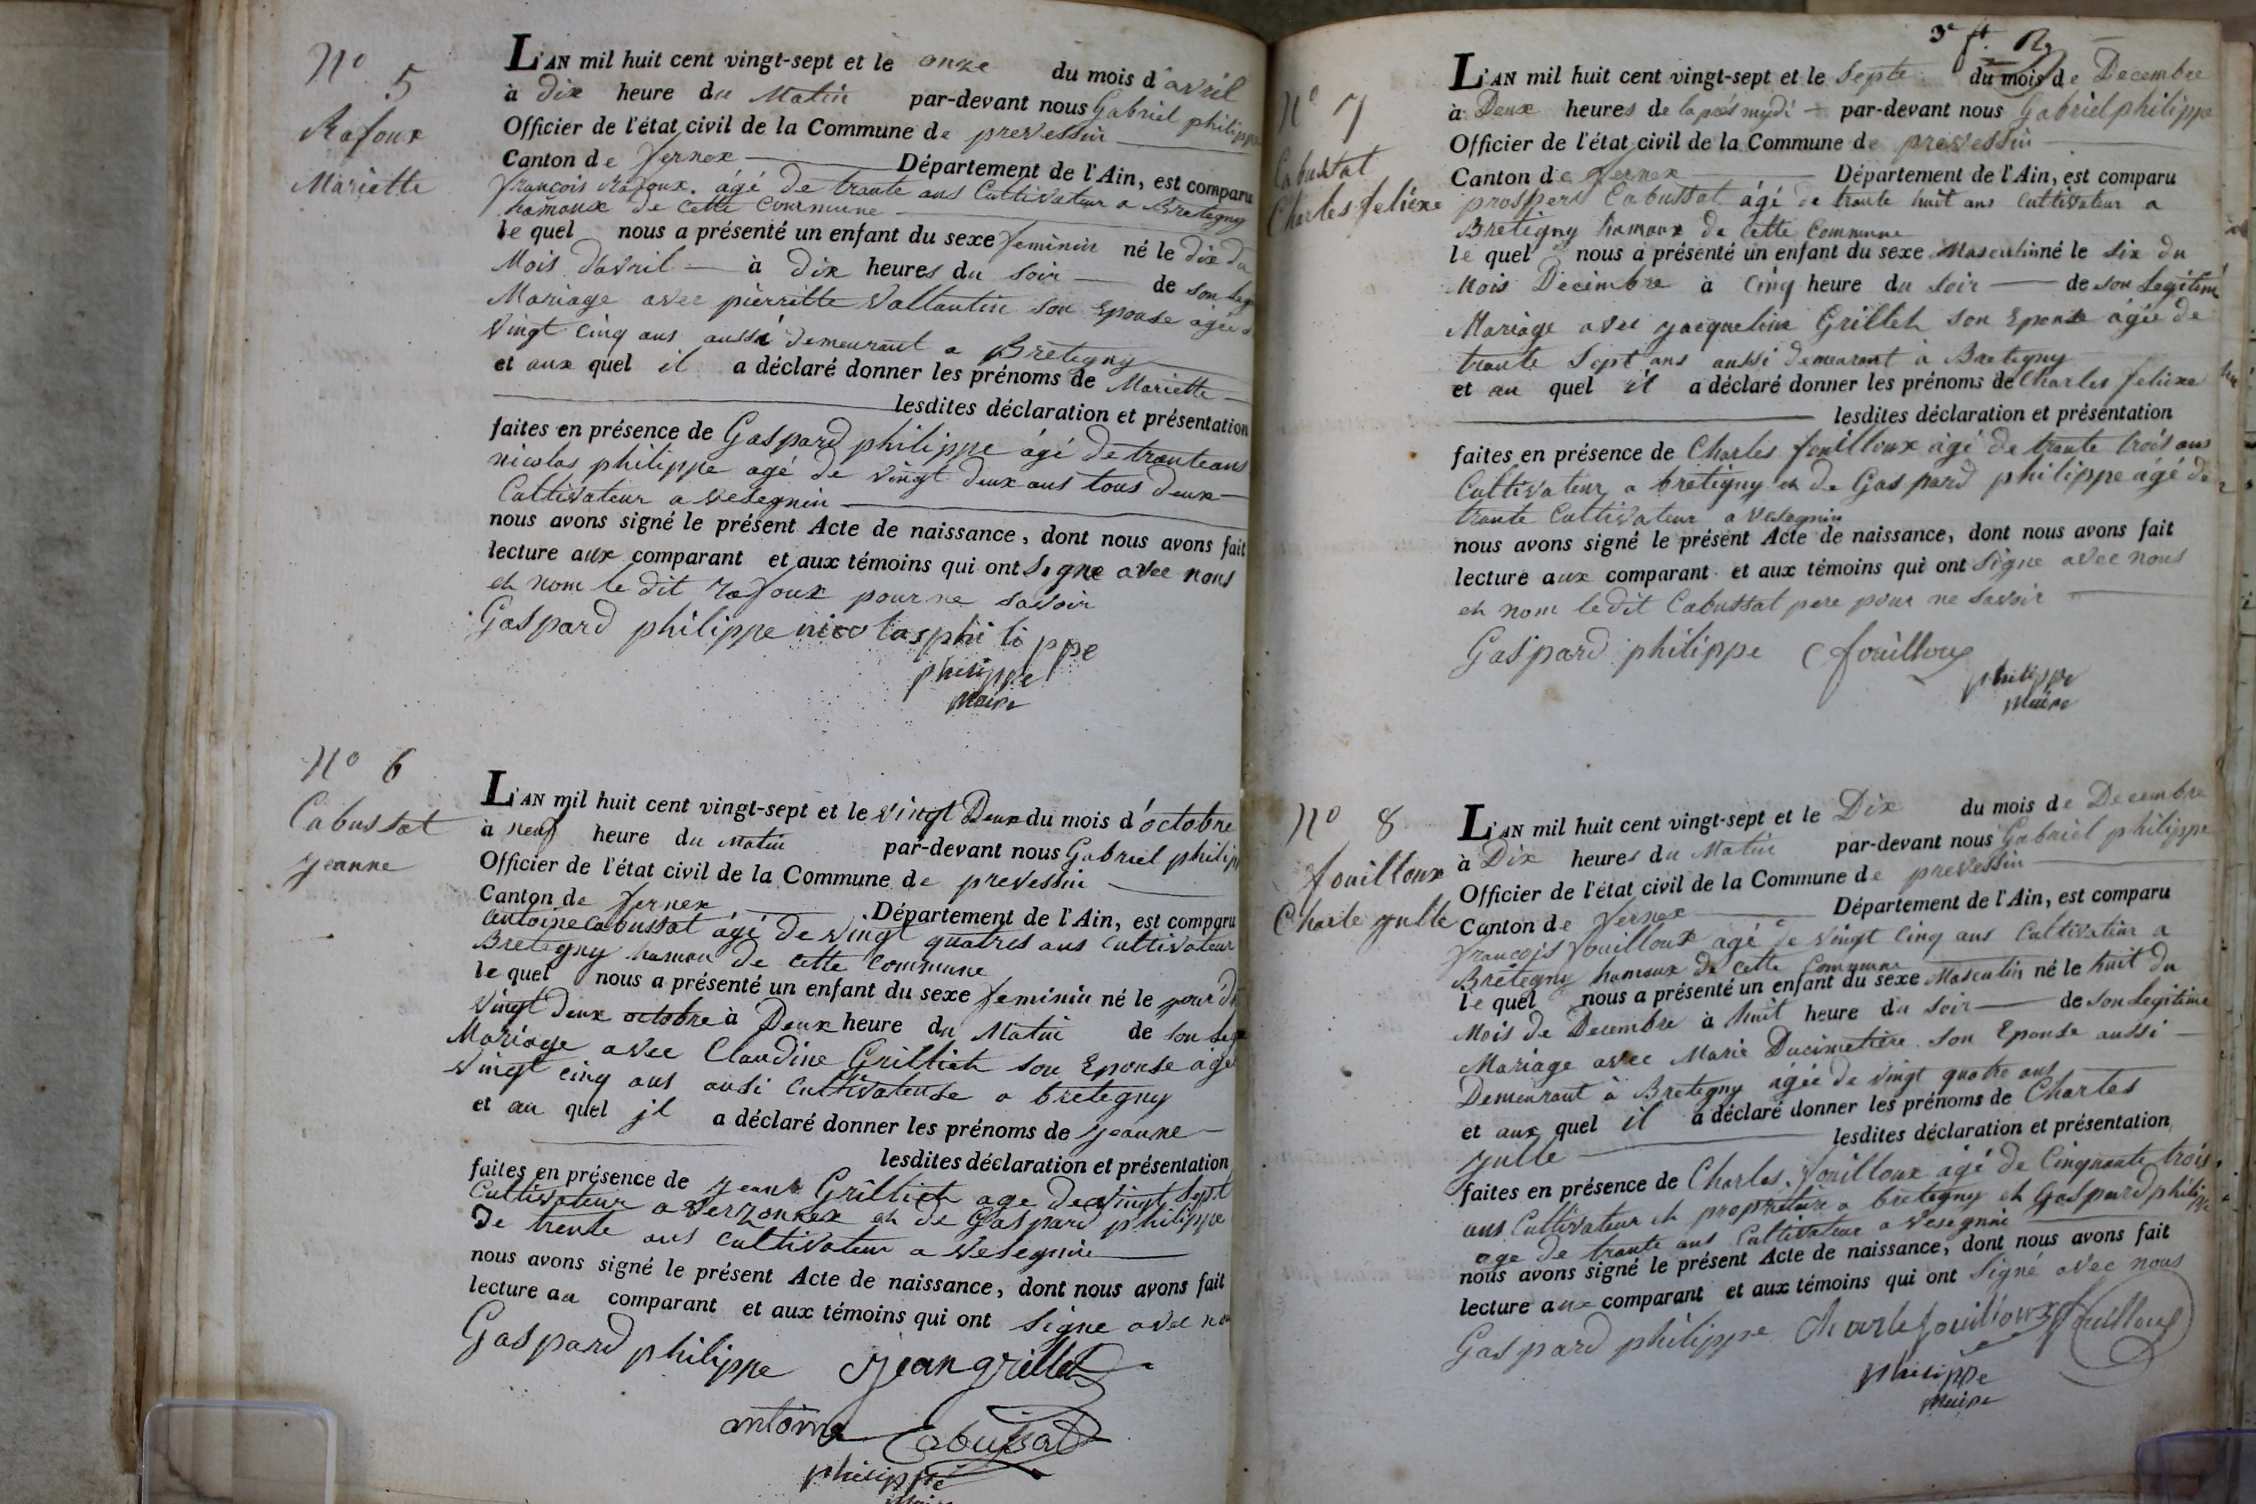 N.o 5
Rafoux
Mariette
L'AN mil huit cent vingt-sept et le onze du mois d'avril
à Dix heure du Matin par-devant nous Gabriel philippe
Officier de l'état civil de la Commune de prevessin
Canton de fernex Département de l'Ain, est comparu
françois Rafoux. âgé de trante ans Cultivateur a Bretegny
hamoux de cette Commune
le quel nous a présenté un enfant du sexe feminin né le dix du
Mois d'avril à dix heures du soir de son leg
Mariage avec pierrette Vallautin son Epouse agée d
Vingt cinq ans aussi demeurant a Bretegny
et aux quel il a déclaré donner les prénoms de Mariette
lesdites déclaration et présentation
faites en présence de Gaspard philippe âgé de trante ans
nicolas philippe agé de vingt deux ans tous deux
Cultivateur a vesegnin
nous avons signé le présent Acte de naissance, dont nous avons fait
lecture aux comparant et aux témoins qui ont Signe avec nous
eh nom le dit rafoux pour ne savoir
Gaspard philippe nicolas philippe
philippe
Maire
N.o 6
Cabussat
jeanne
L'AN mil huit cent vingt-sept et le vingt Deux du mois d'octobre
à neuf heure du Matin par-devant nous Gabriel philip
Officier de l'état civil de la Commune de prevessin
Canton de fernex Département de l'Ain, est comparu
antoine Cabussat âgé de vingt quatres ans Cultivateur
Bretegny hamou de cette Commune
le quel nous a présenté un enfant du sexe feminin né le jour'd
vingt deux octobre à Deux heure du Matin de son leg
Mariage avec Claudine Grillieh son Epouse âge
Vingt cinq ans ausi Cultivateuse a bretegny
et au quel jl a déclaré donner les prénoms de jeanne
lesdites déclaration et présentation
faites en présence de jean Grillieh age de vingt sept
Cultivateur a Verzonnex eh de Gaspard philippe
De trente ans Cultivateur a Vesegnin
nous avons signé le présent Acte de naissance, dont nous avons fait
lecture au comparant et aux témoins qui ont Signe avec no
Gaspard philippe jean grillet
antoine Cabussat
philippe
Maire
3e
N.o 7
Cabussat
Charles felixe
L'AN mil huit cent vingt-sept et le Septe du mois de Decembre
à Deux heures de lapres mydi par-devant nous Gabriel philippe
Officier de l'état civil de la Commune de prevessin
Canton de fernex Département de l'Ain, est comparu
prospere Cabussat âgé de trante huit ans Cultivateur a
Bretigny hamoux de cette Commune
le quel nous a présenté un enfant du sexe Masculin né le six du
Mois Decembre à Cinq heure du soir de son Legitime
Mariage avec jacqueline Grilleh son Epouse âgée de
trante Sept ans aussi demeurant à Bretegny
et au quel il a déclaré donner les prénoms de Charles felixe
lesdites déclaration et présentation
faites en présence de Charles fouilloux âgé de trante trois ans
Cultivateur a bretigny eh de Gaspard philippe âgé de
trante Cultivateur a vesegnin
nous avons signé le présent Acte de naissance, dont nous avons fait
lecture aux comparant et aux témoins qui ont Signe avec nous
eh nom ledit Cabussat pere pour ne savoir
Gaspard philippe C fouilloux
philippe
Maire
N.o 8
fouilloux
Charle julle
L'AN mil huit cent vingt-sept et le Dix du mois de Decembre
à Dix heures du Matin par-devant nous Gabriel philippe
Officier de l'état civil de la Commune de prevessin
Canton de fernex Département de l'Ain, est comparu
françois fouilloux agé de vingt Cinq ans Cultivateur a
Bretegny hamoux de cette Commune
le quel nous a présenté un enfant du sexe Masculin né le huit du
Mois de Decembre à huit heure du soir de son Legitime
Mariage avec Marie Ducimetiere son Epouse aussi
Demeurant à Bretegny âgée de vingt quatre ans
et aux quel il a déclaré donner les prénoms de Charles
julle lesdites déclaration et présentation
faites en présence de Charles fouilloux agé de Cinquante trois
ans Cultivateur eh propriétaire a bretegny eh Gaspard philippe
age de trante ans Cultivateur a vesegnin
nous avons signé le présent Acte de naissance, dont nous avons fait
lecture aux comparant et aux témoins qui ont Signé avec nous
Gaspard philippe Charle fouilloux fouilloux
philippe
Maire